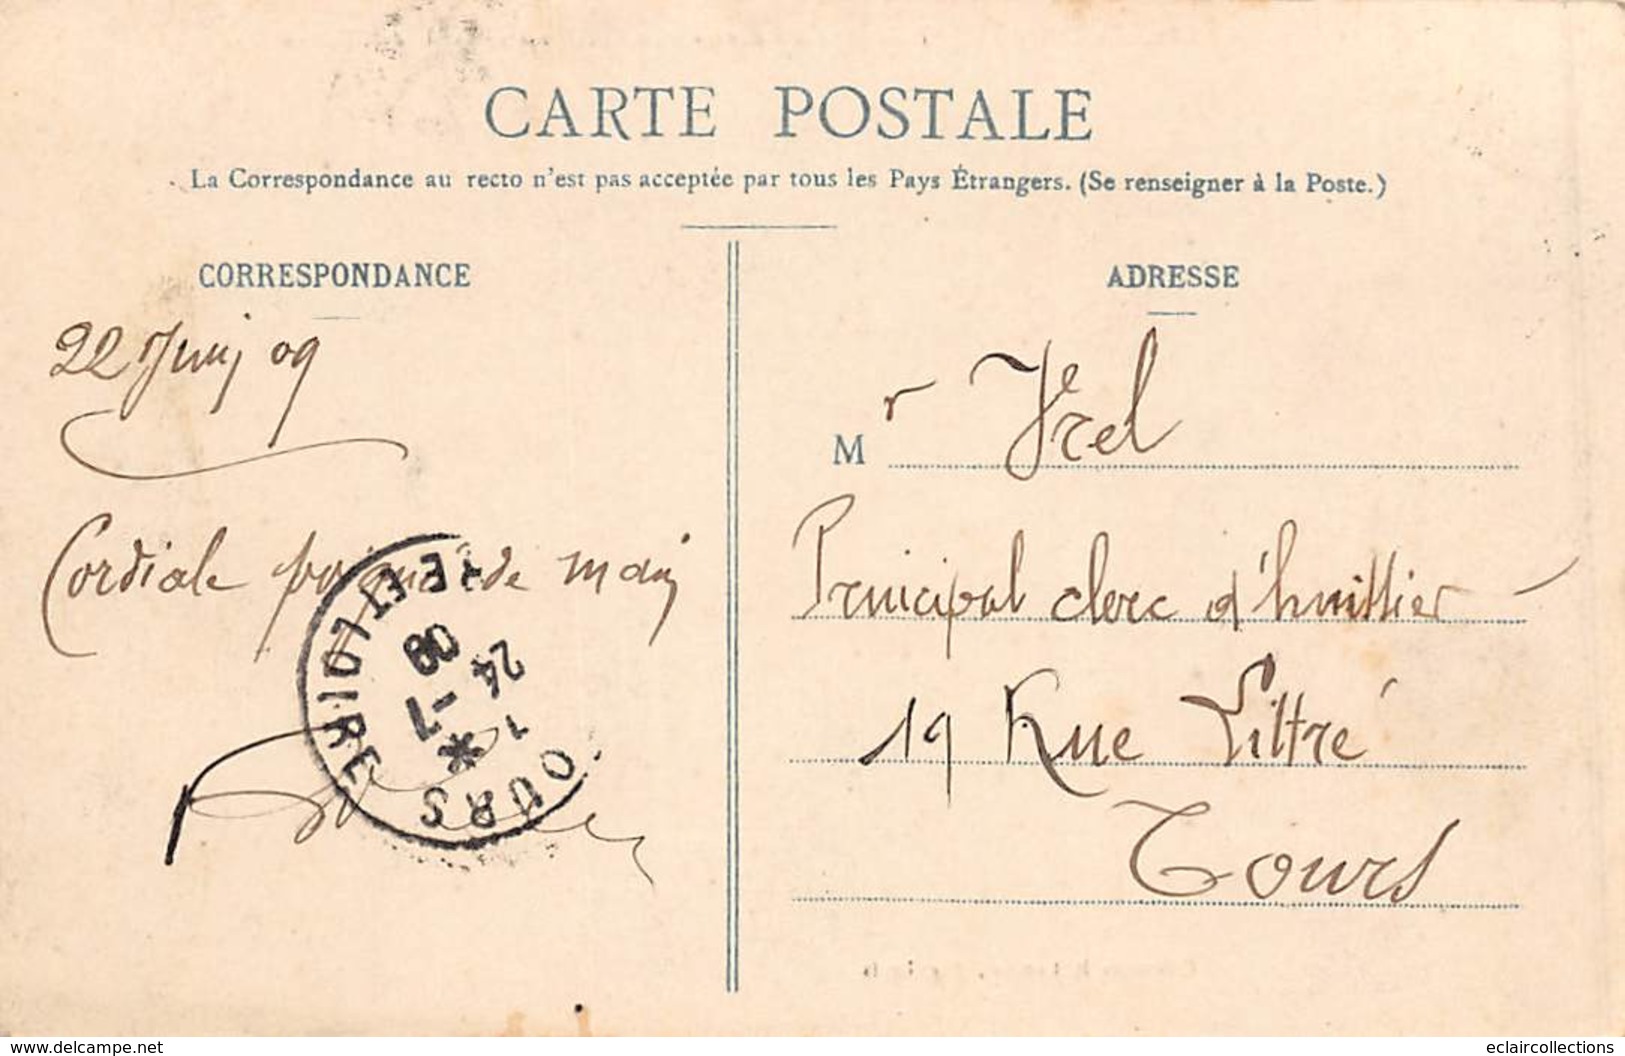 CARTE POSTALE
La Correspondance au recto n'est pas acceptée par tous les Pays Étrangers. (Se renseigner à la Poste.)
CORRESPONDANCE
22 Juin 09
Cordiale poignée de main
TOURS
INDRE ET LOIRE
1
24
-7
09
ADRESSE
Mr
Principal clerc d'huissier
19 Rue Littré
Tours
www.delcampe.net
eclaircollections